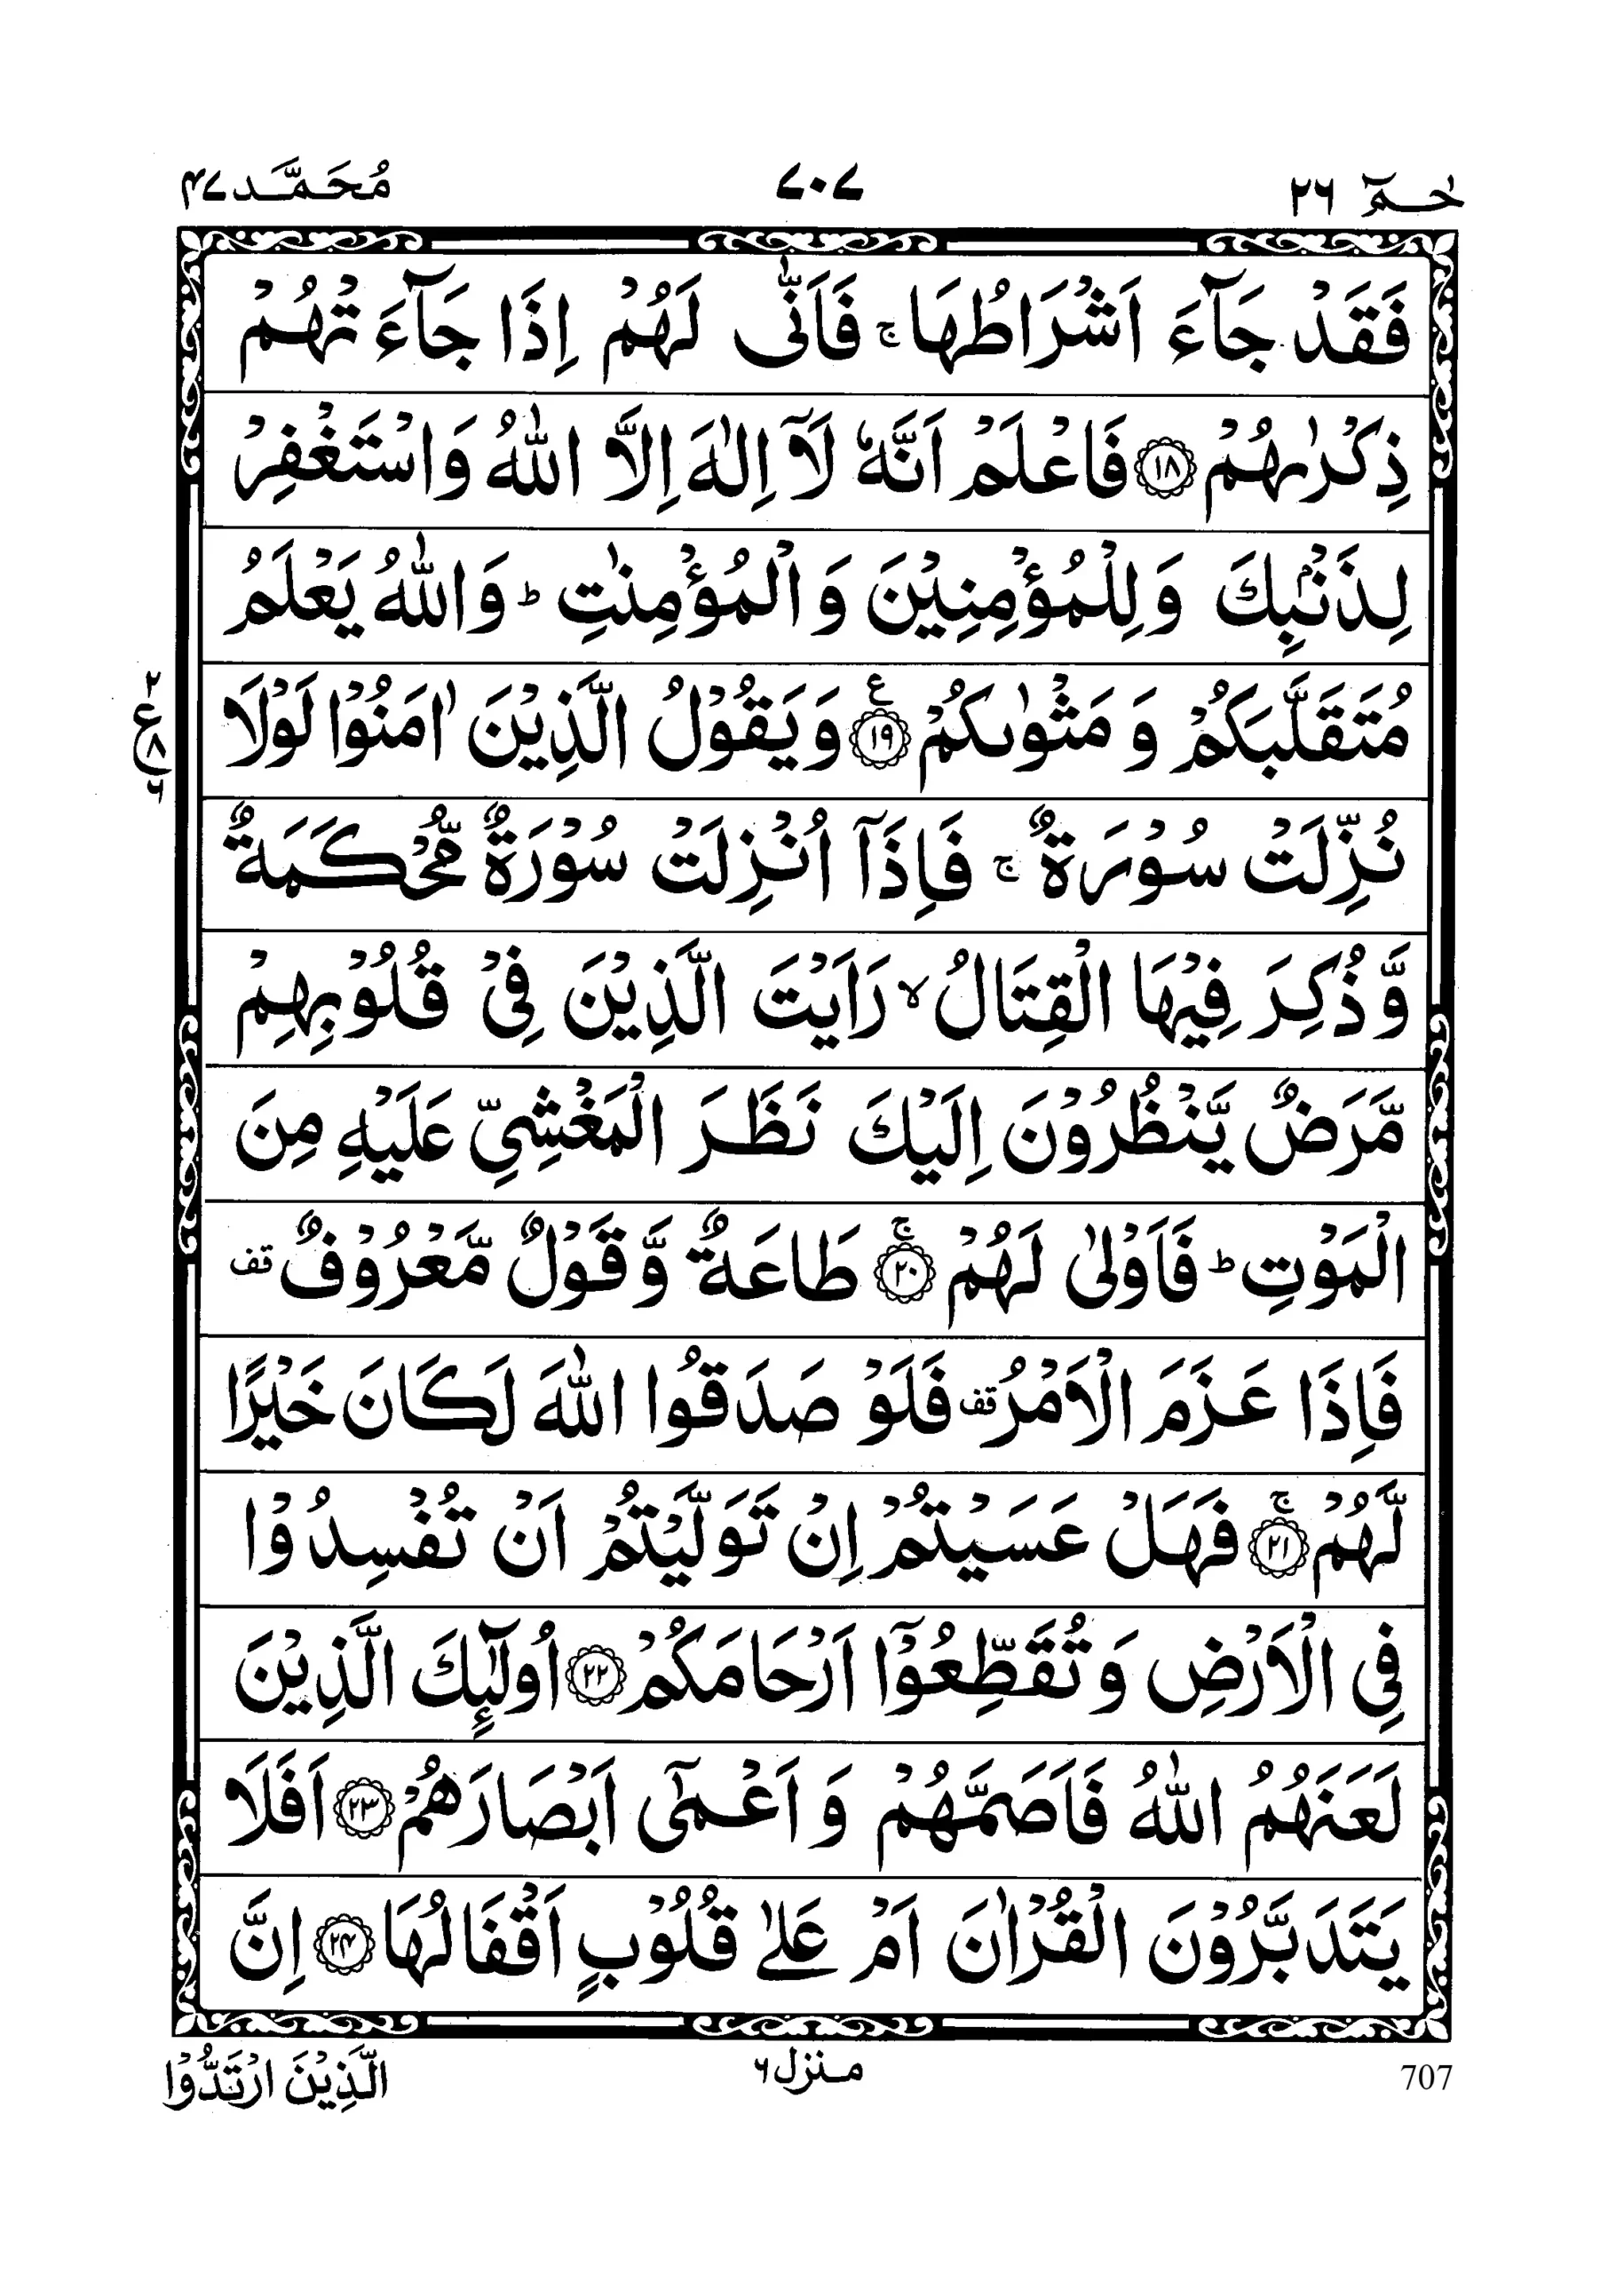 حٰمٓ ٢٦ ٧٠٧ مُحَمَّد ٤٧
فَقَدْ جَآءَ اَشْرَاطُهَا ۚ فَاَنّٰى لَهُمْ اِذَا جَآءَتْهُمْ
ذِكْرٰىهُمْ ﴿١٨﴾ فَاعْلَمْ اَنَّهٗ لَاۤ اِلٰهَ اِلَّا اللّٰهُ وَاسْتَغْفِرْ
لِذَنْۢبِكَ وَلِلْمُؤْمِنِيْنَ وَالْمُؤْمِنٰتِ ؕ وَاللّٰهُ يَعْلَمُ
مُتَقَلَّبَكُمْ وَمَثْوٰىكُمْ ﴿١٩﴾ ع وَيَقُوْلُ الَّذِيْنَ اٰمَنُوْا لَوْلَا
٢ ع ٨ ٦
نُزِّلَتْ سُوْرَةٌ ۚ فَاِذَاۤ اُنْزِلَتْ سُوْرَةٌ مُّحْكَمَةٌ
وَّذُكِرَ فِيْهَا الْقِتَالُ ۙ رَاَيْتَ الَّذِيْنَ فِيْ قُلُوْبِهِمْ
مَّرَضٌ يَّنْظُرُوْنَ اِلَيْكَ نَظَرَ الْمَغْشِيِّ عَلَيْهِ مِنَ
الْمَوْتِ ؕ فَاَوْلٰى لَهُمْ ﴿٢٠﴾ ۚ طَاعَةٌ وَّقَوْلٌ مَّعْرُوْفٌ قف
فَاِذَا عَزَمَ الْاَمْرُ قف فَلَوْ صَدَقُوا اللّٰهَ لَكَانَ خَيْرًا
لَّهُمْ ﴿٢١﴾ ۚ فَهَلْ عَسَيْتُمْ اِنْ تَوَلَّيْتُمْ اَنْ تُفْسِدُوْا
فِي الْاَرْضِ وَتُقَطِّعُوْۤا اَرْحَامَكُمْ ﴿٢٢﴾ اُولٰٓئِكَ الَّذِيْنَ
لَعَنَهُمُ اللّٰهُ فَاَصَمَّهُمْ وَاَعْمٰۤى اَبْصَارَهُمْ ﴿٢٣﴾ اَفَلَا
يَتَدَبَّرُوْنَ الْقُرْاٰنَ اَمْ عَلٰى قُلُوْبٍ اَقْفَالُهَا ﴿٢٤﴾ اِنَّ
707 منزل ٦ الَّذِيْنَ ارْتَدُّوْا